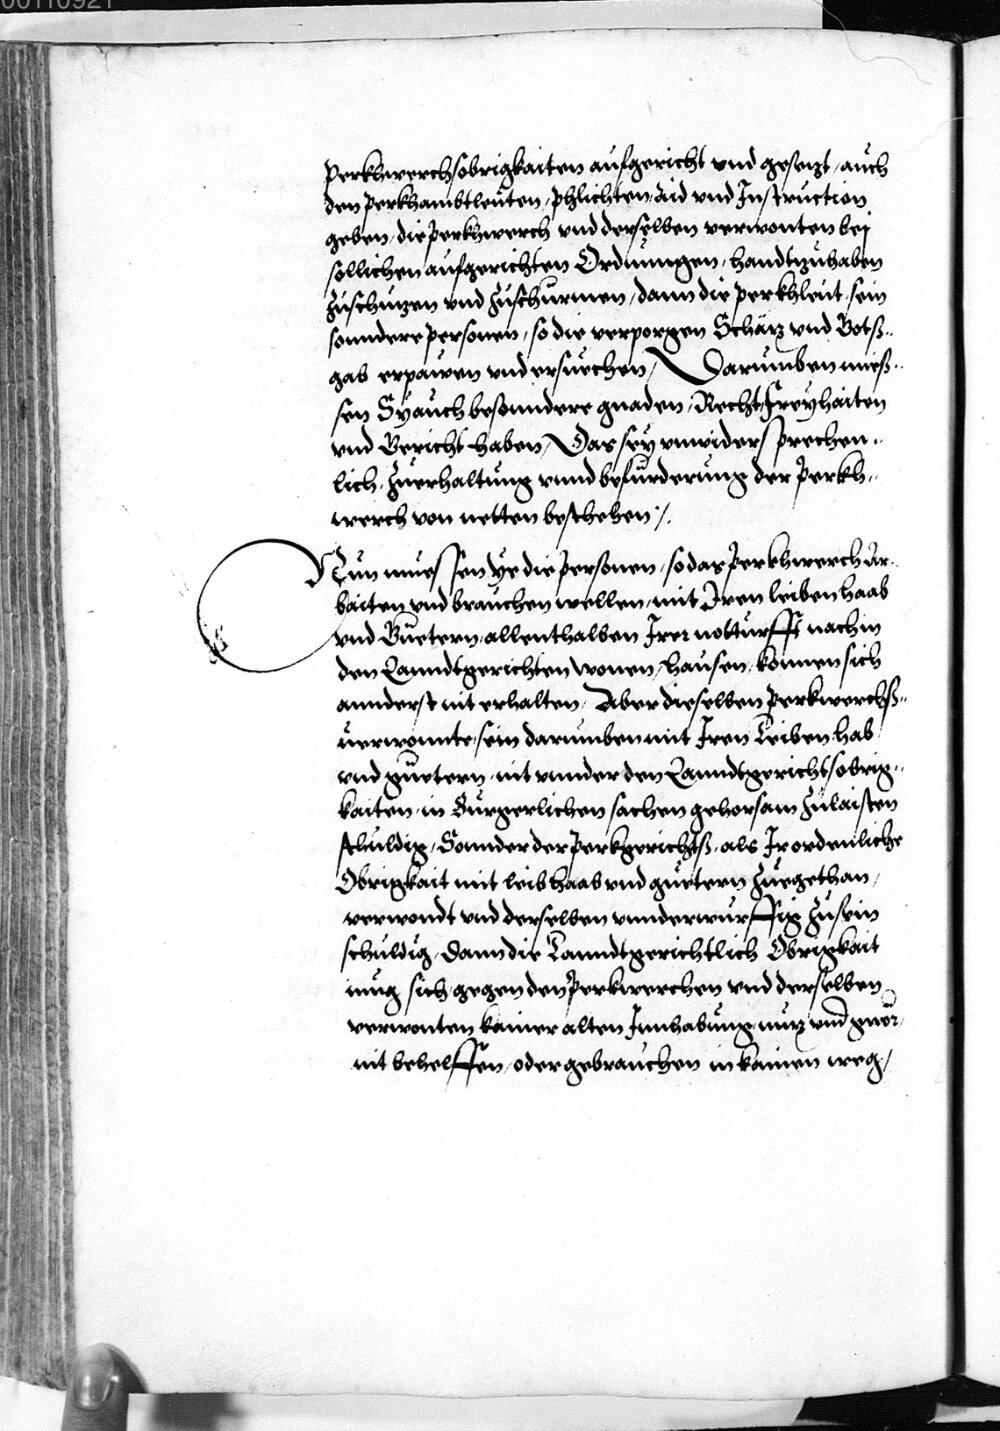 00110921
Perkhwerchsobrigkaiten aufgericht vnd gesetzt, auch
den Perkhambtleuten, Phlichten, Aid vnd Instruction
geben, die Perkhwerch vnd derselben verwonten bei
sollichen aufgerichten Ordnungen, handtzuhaben
zuschutzen vnd zuschurmen, dann die Perkhleut, sein
sonndere Personen, so die verporgen Schätz vnd Gots-
gab erpawen vnd ersuechen, Darumben mues-
sen Sy auch besonndere gnaden, Recht, Freyhaiten
vnd Gericht haben, Das sey vnwidersprechen-
lich, zuerhaltung vnnd befurderung der Perkh-
werch von netten beschehen ./.
Nun muessen ye die Personen, so das Perkhwerch Ar-
baiten vnd brauchen wellen, mit Iren leiben haab
vnd Guetern, allenthalben Irer notturfft nach in
den Lanndtgerichten wonen, hausen, können sich
annderst nit erhalten, Aber dieselben Perkwerchß-
verwonnte, sein darumben mit Iren Leiben hab
vnd guetern, nit vnnder den Lanndtgerichtsobrig-
kaiten, in Burgerlichen sachen gehorsam zulaisten
schuldig, Sonnder der Perkgerichtß, als Ir ordenliche
Obrigkait mit leib haab vnd guetern zuegethan,
verwondt vnd derselben vnnderwurffig zusein
schuldig, Dann die Lanndtgerichtlich Obrigkait
mag sich gegen den Perkwerchen vnd derselben
verwonten kainer alten Innhabung nutz vnd gwör,
nit behelffen, oder gebrauchen in kainen weg,